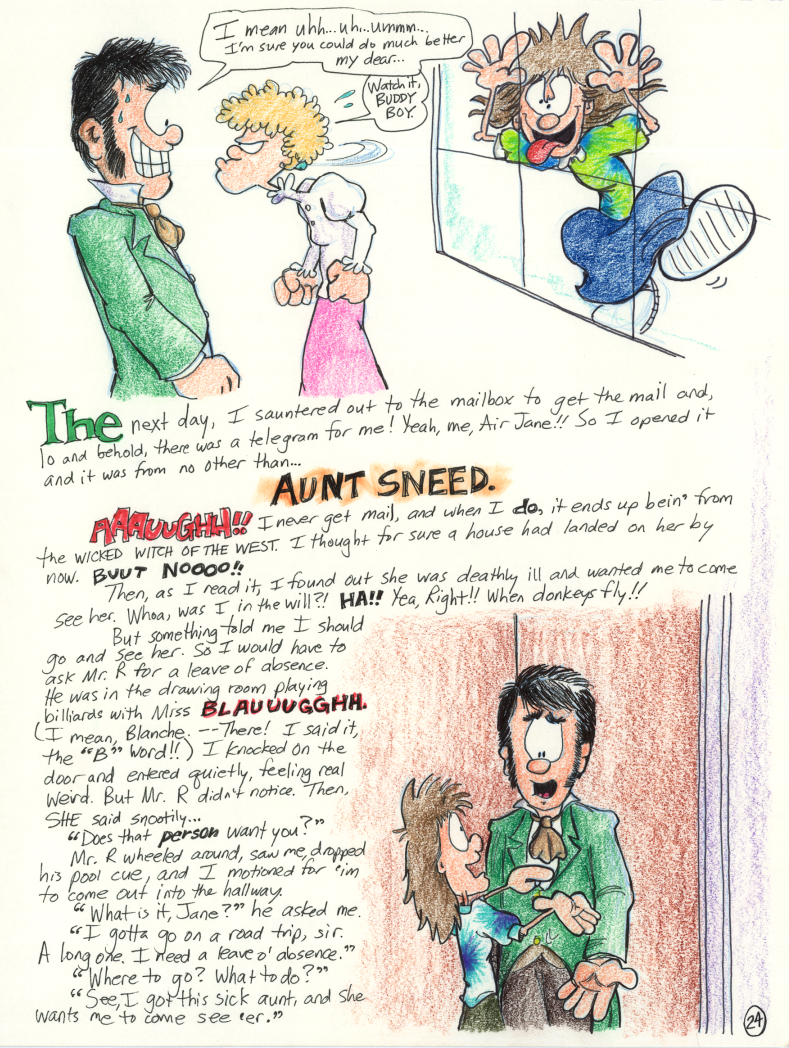 I mean uhh...uh...ummm...
I'm sure you could do much better
my dear...
Watch it,
BUDDY
BOY.
The next day, I sauntered out to the mailbox to get the mail and,
lo and behold, there was a telegram for me! Yeah, me, Air Jane!! So I opened it
and it was from no other than...
AUNT SNEED.
AAAUUGHH!! I never get mail, and when I do, it ends up bein' from
the WICKED WITCH OF THE WEST. I thought for sure a house had landed on her by
now. BUUT NOOOO!!
Then, as I read it, I found out she was deathly ill and wanted me to come
see her. Whoa, was I in the will?! HA!! Yea, Right!! When donkeys fly!!
But something told me I should
go and see her. So I would have to
ask Mr. R for a leave of absence.
He was in the drawing room playing
billiards with Miss BLAUUUGGHH.
(I mean, Blanche. --There! I said it,
the "B" word!!) I knocked on the
door and entered quietly, feeling real
weird. But Mr. R didn't notice. Then,
SHE said snootily...
"Does that person want you?"
Mr. R wheeled around, saw me, dropped
his pool cue, and I motioned for 'im
to come out into the hallway.
"What is it, Jane?" he asked me.
"I gotta go on a road trip, sir.
A long one. I need a leave o' absence."
"Where to go? What to do?"
"See, I got this sick aunt, and she
wants me to come see 'er."
24